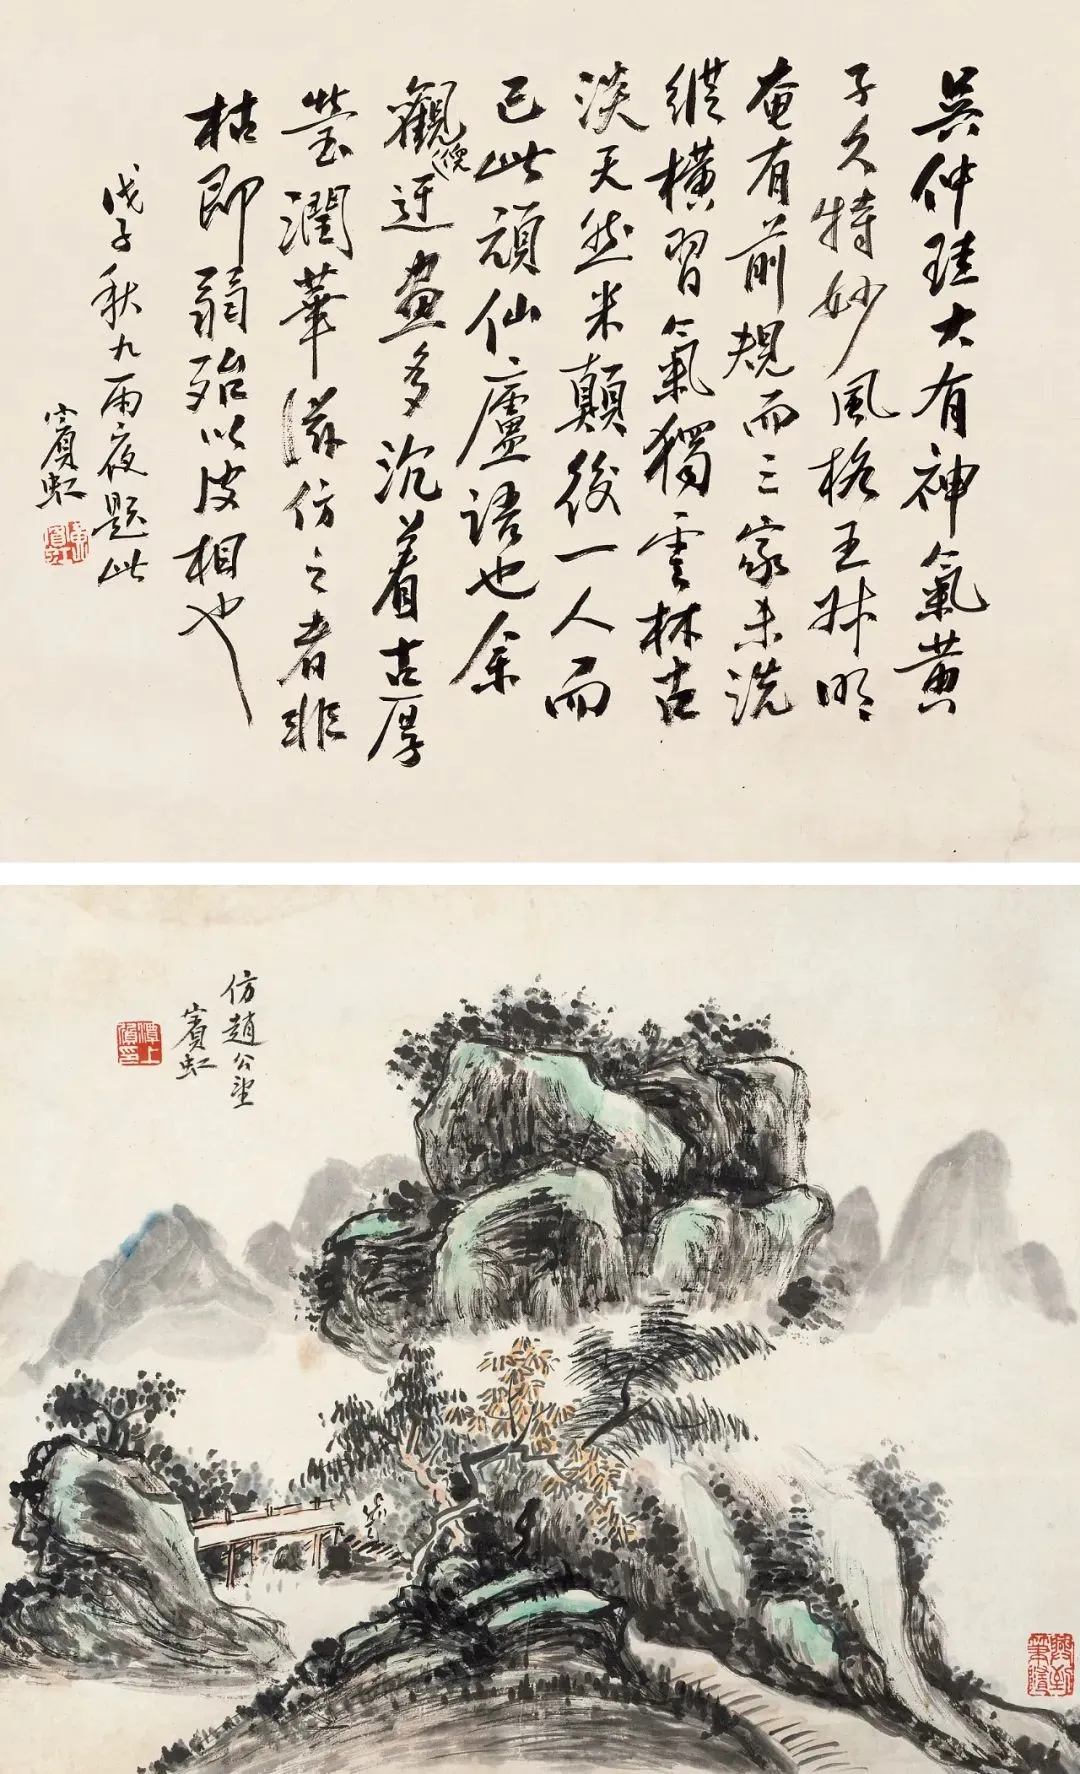 吳仲珪大有神氣黃
子久特妙風格王叔明
奄有前規而三家未洗
縱橫習氣獨雲林古
淡天然米顛後一人而
已此頑仙廬語也余
觀倪迂畫多沉着古厚
瑩潤華滋仿之者非
枯即弱殆以皮相也
戊子秋九雨夜題此
賓虹
黃賓虹
仿趙公望
賓虹
潭上質印
興到筆隨